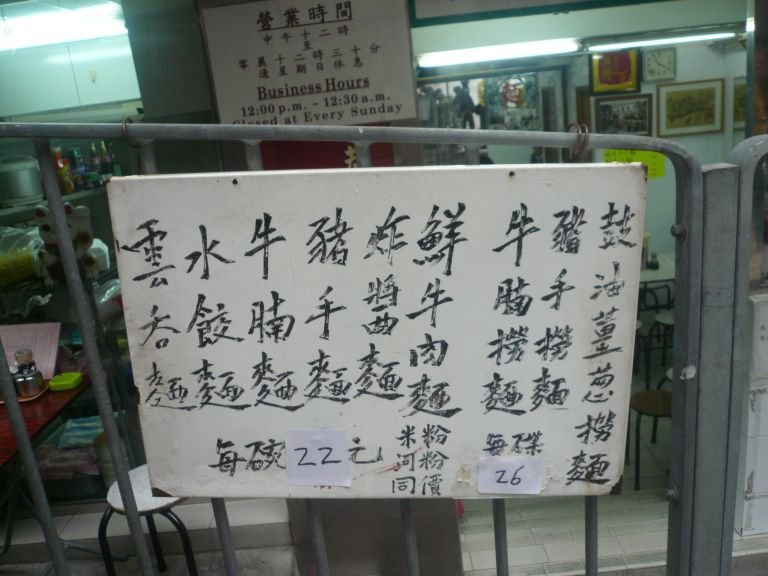 營業時間
中午十二時
至
零晨十二時三十分
逢星期日休息
Business Hours
12:00 p.m. - 12:30 a.m.
Closed at Every Sunday
雲吞麵
水餃麵
牛腩麵
豬手麵
炸醬麵
鮮牛肉麵
每碗22元
米粉
河粉
同價
牛腩撈麵
豬手撈麵
鼓油薑葱撈麵
每碟
26